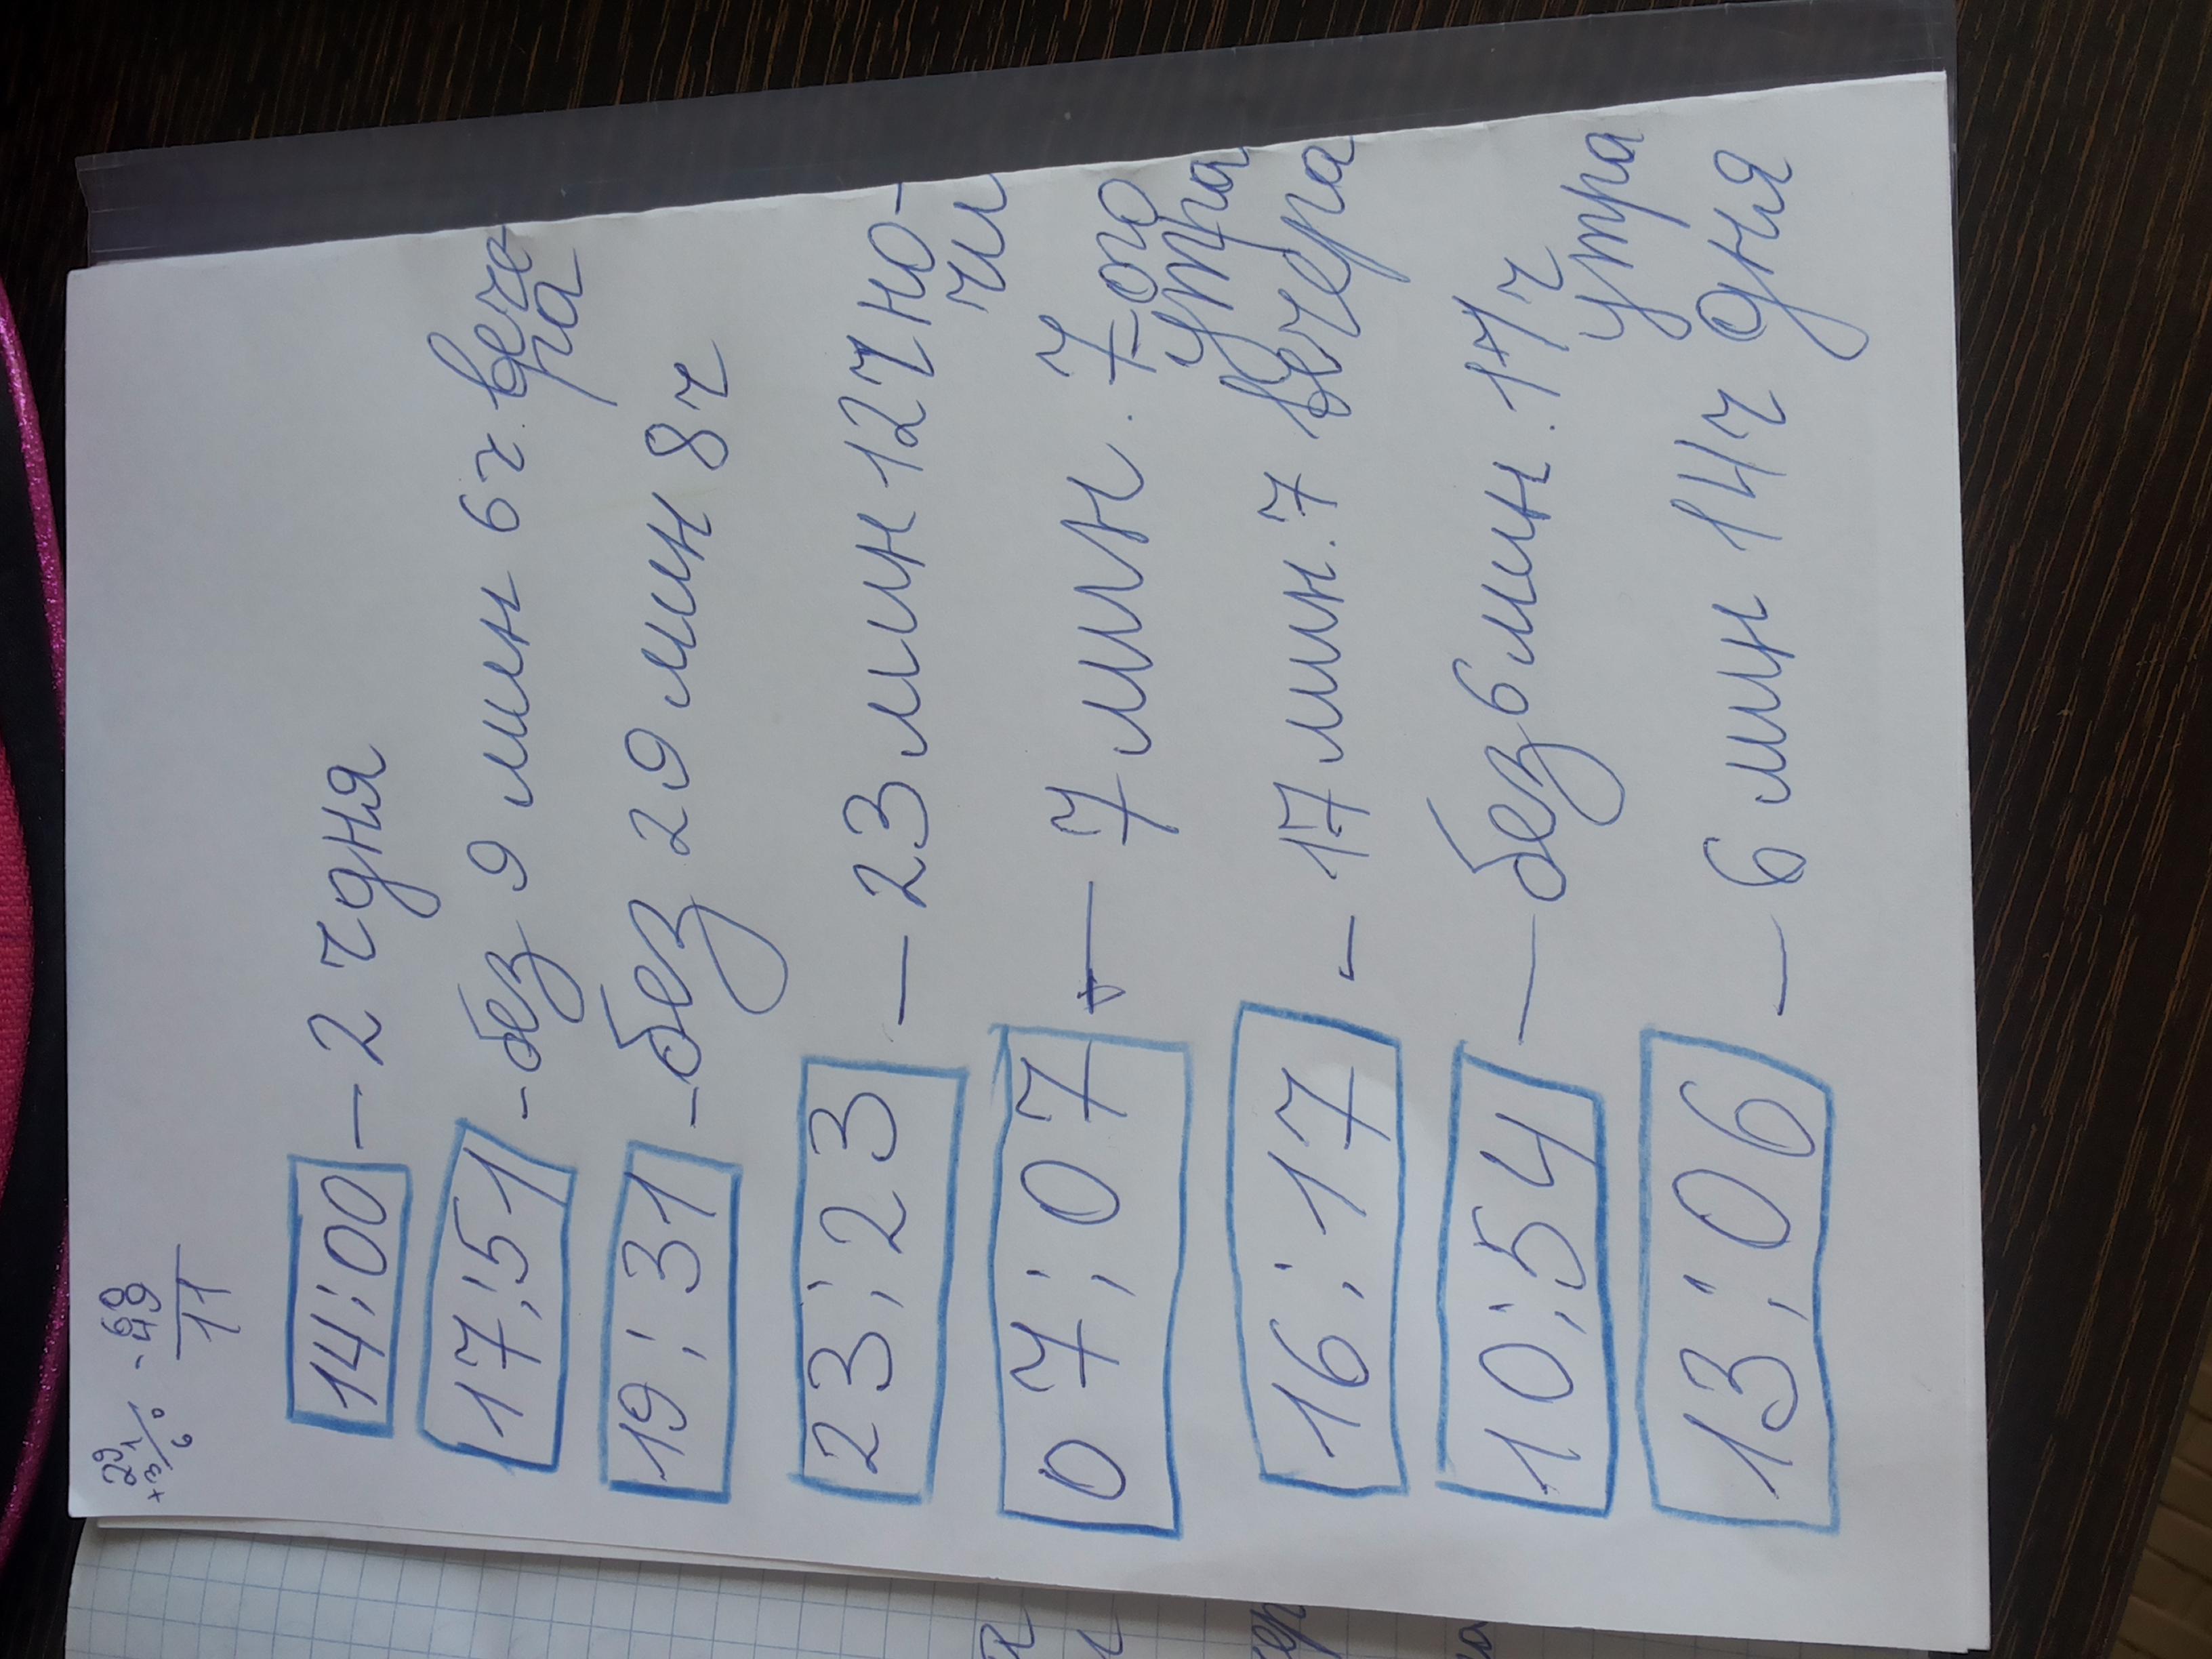 29
+31
60
- 60
49
11
14:00 — 2 ч дня
17:51 - без 9 мин 6 ч. вече-
ра
19:31 - без 29 мин 8 ч
23:23 — 23 мин 12 ч но-
чи
07:07 — 7 мин. 7-ого
утра
16:17 - 17 мин. 7 вечера
10:54 — без 6 мин. 11 ч
утра
13:06 — 6 мин 14 ч дня